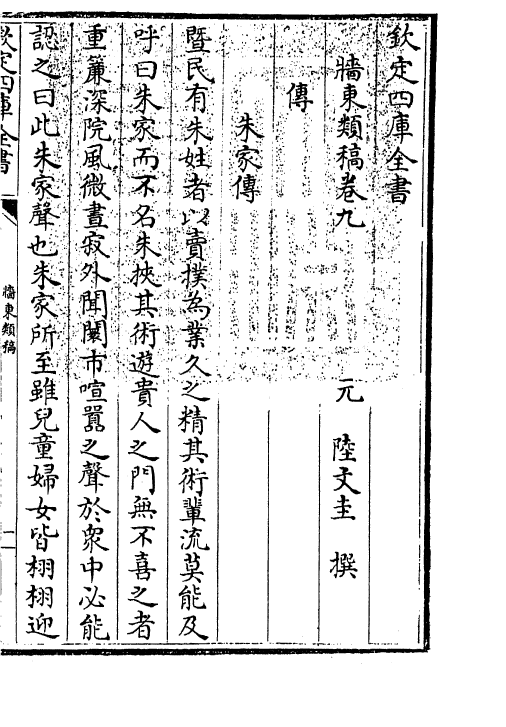 欽定四庫全書
牆東類稿卷九　元　陸文圭　撰
傳
朱家傳
暨民有朱姓者以賣撲為業久之精其術輩流莫能及
呼曰朱家而不名朱挾其術遊貴人之門無不喜之者
重簾深院風微晝寂外聞闤市喧囂之聲於衆中必能
認之曰此朱家聲也朱家所至雖兒童婦女皆栩栩迎
欽定四庫全書
牆東類稿
一